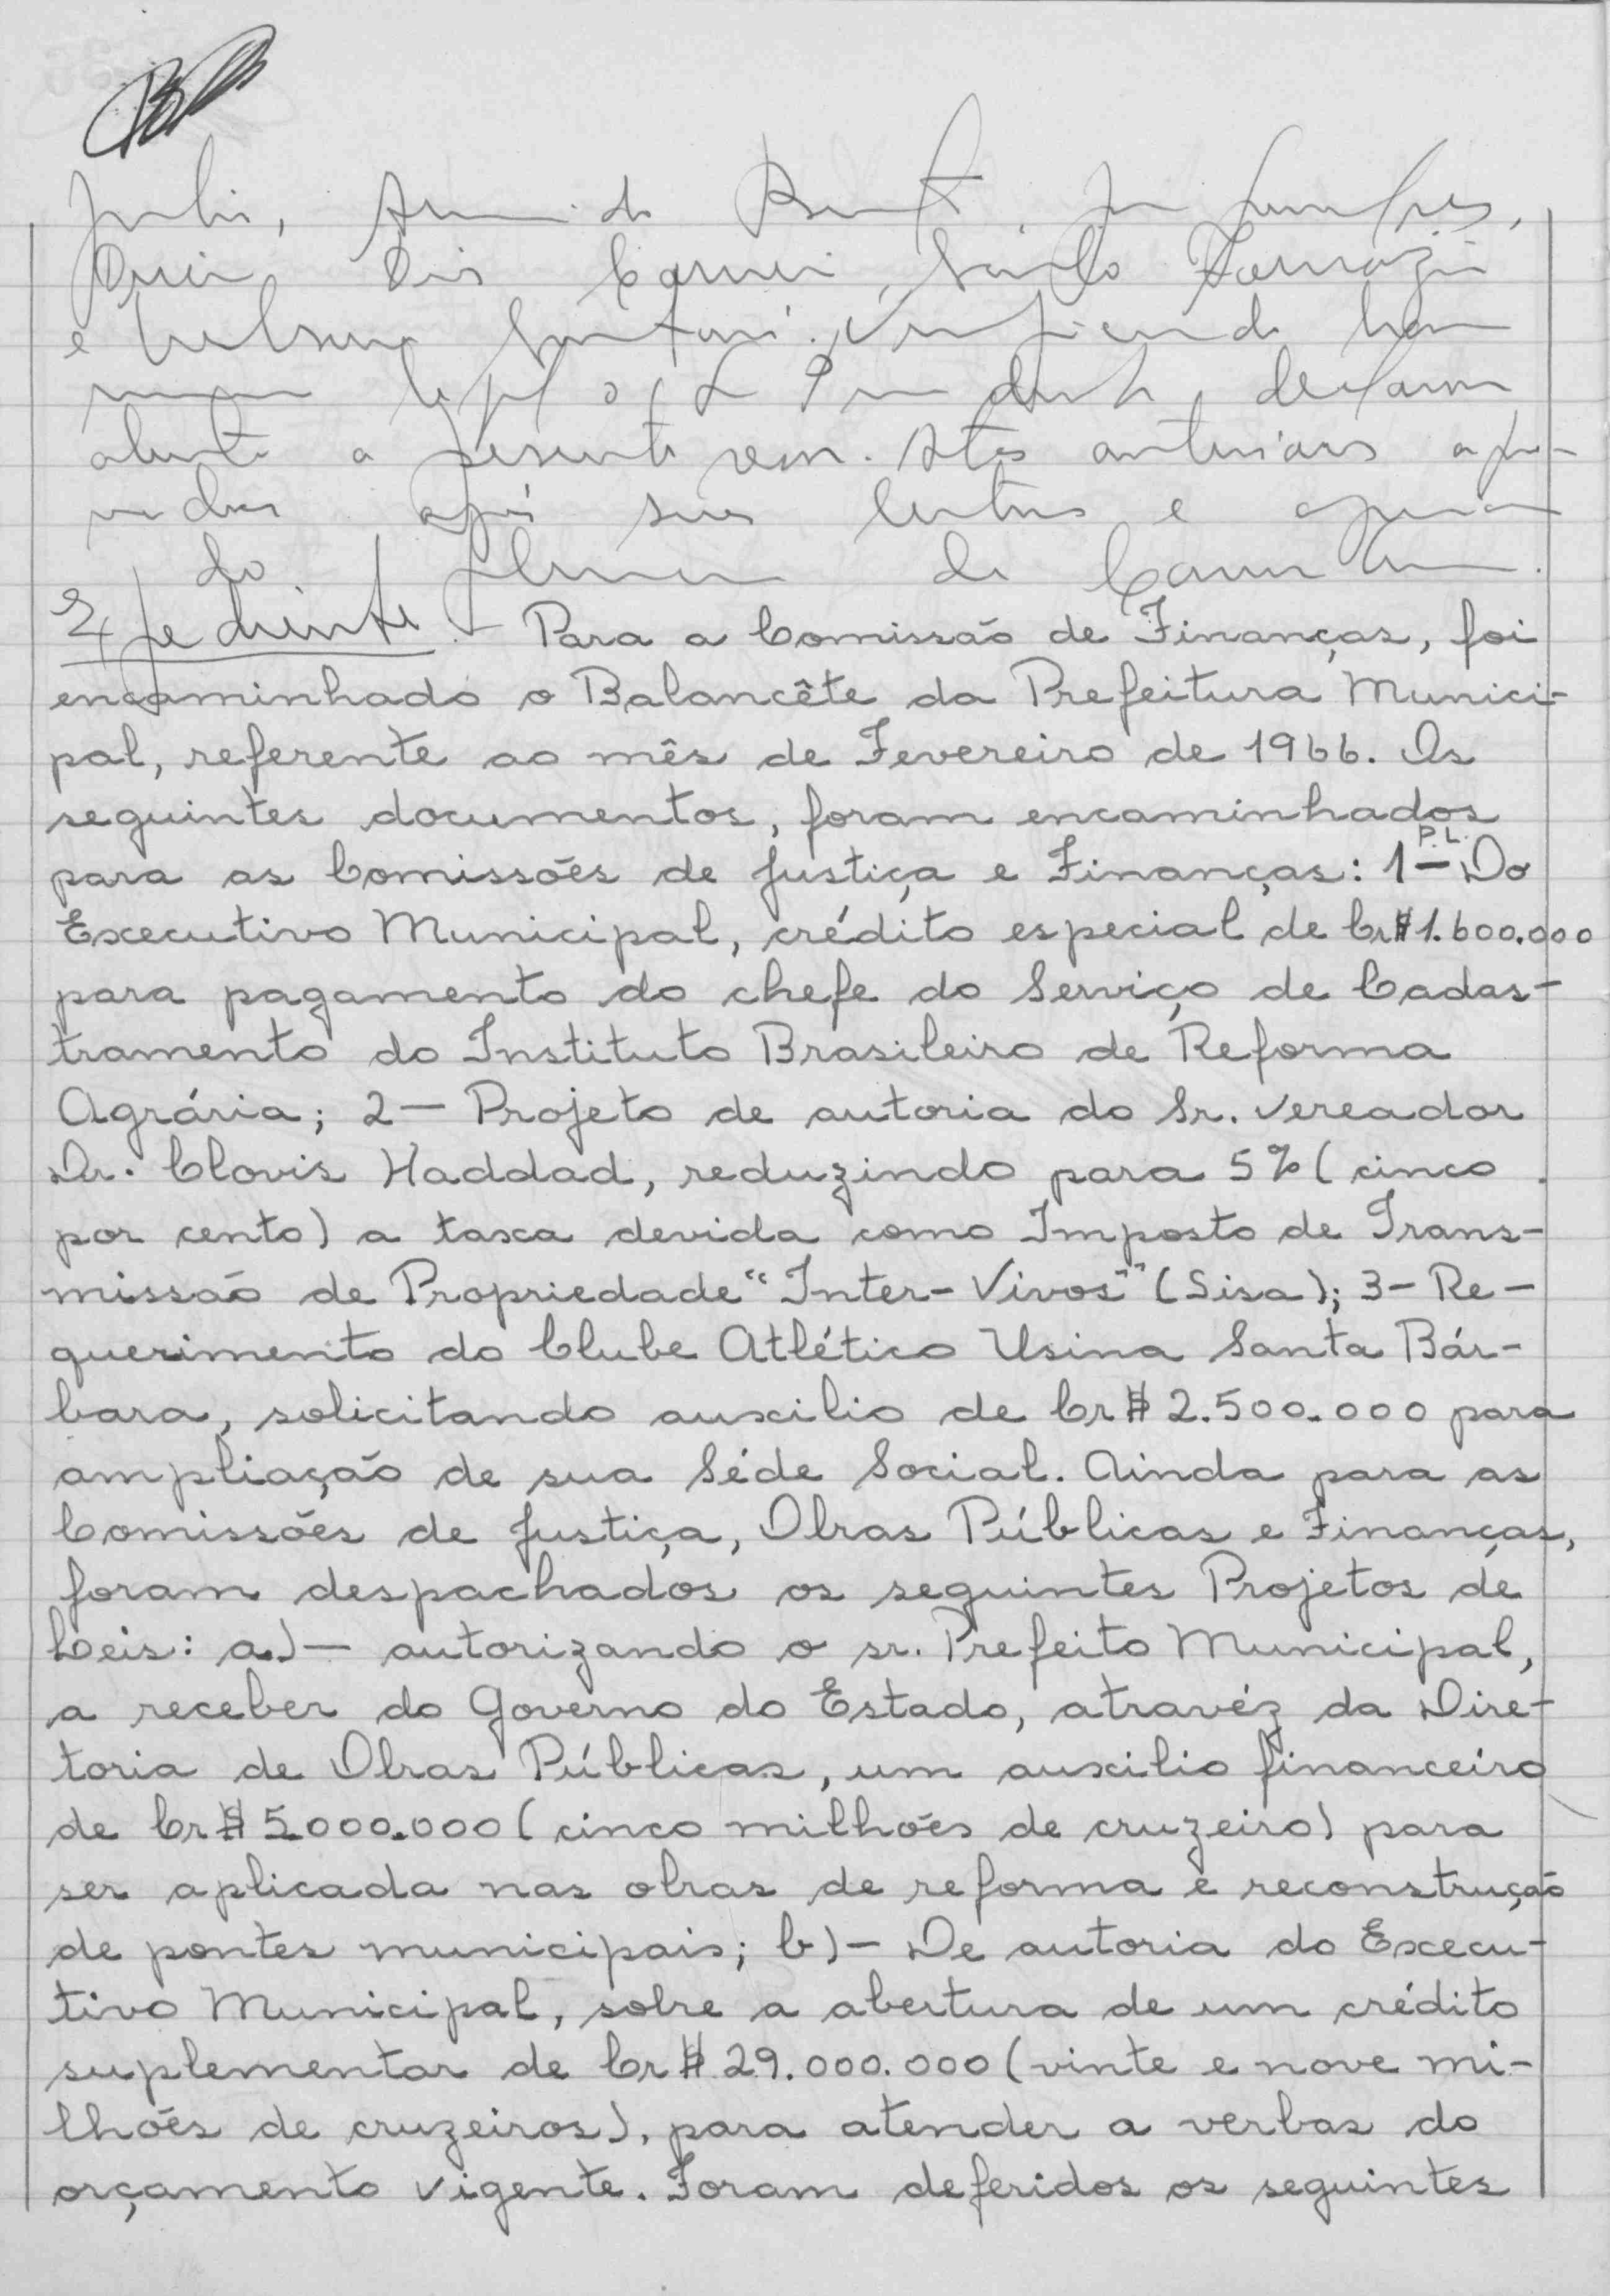 e Nelson
número legal o Sr. Presidente, declarou
aberta a presente sessão. Atas anteriores apro-
vadas após sua leitura e
Expediente - Para a Comissão de Finanças, foi
encaminhado o Balancête da Prefeitura Munici-
pal, referente ao mês de Fevereiro de 1966. Os
seguintes documentos, foram encaminhados
para as Comissões de Justiça e Finanças: 1 - P.L. Do
Executivo Municipal, crédito especial de Cr$ 1.600.000
para pagamento do chefe do Serviço de Cadas-
tramento do Instituto Brasileiro de Reforma
Agrária; 2 - Projeto de autoria do Sr. vereador
Dr. Clovis Haddad, reduzindo para 5% (cinco
por cento) a taxa devida como Imposto de Trans-
missão de Propriedade "Inter-Vivos" (Sisa); 3 - Re-
querimento do Clube Atlético Usina Santa Bár-
bara, solicitando auxilio de Cr$ 2.500.000 para
ampliação de sua Séde Social. Ainda para as
Comissões de Justiça, Obras Públicas e Finanças,
foram despachados os seguintes Projetos de
Leis: a) - autorizando o sr. Prefeito Municipal,
a receber do Governo do Estado, atravéz da Dire-
toria de Obras Públicas, um auxilio financeiro
de Cr$ 5.000.000 (cinco milhões de cruzeiro) para
ser aplicada nas obras de reforma e reconstrução
de pontes municipais; b) - De autoria do Execu-
tivo Municipal, sobre a abertura de um crédito
suplementar de Cr$ 29.000.000 (vinte e nove mi-
lhões de cruzeiros), para atender a verbas do
orçamento vigente. Foram deferidos os seguintes